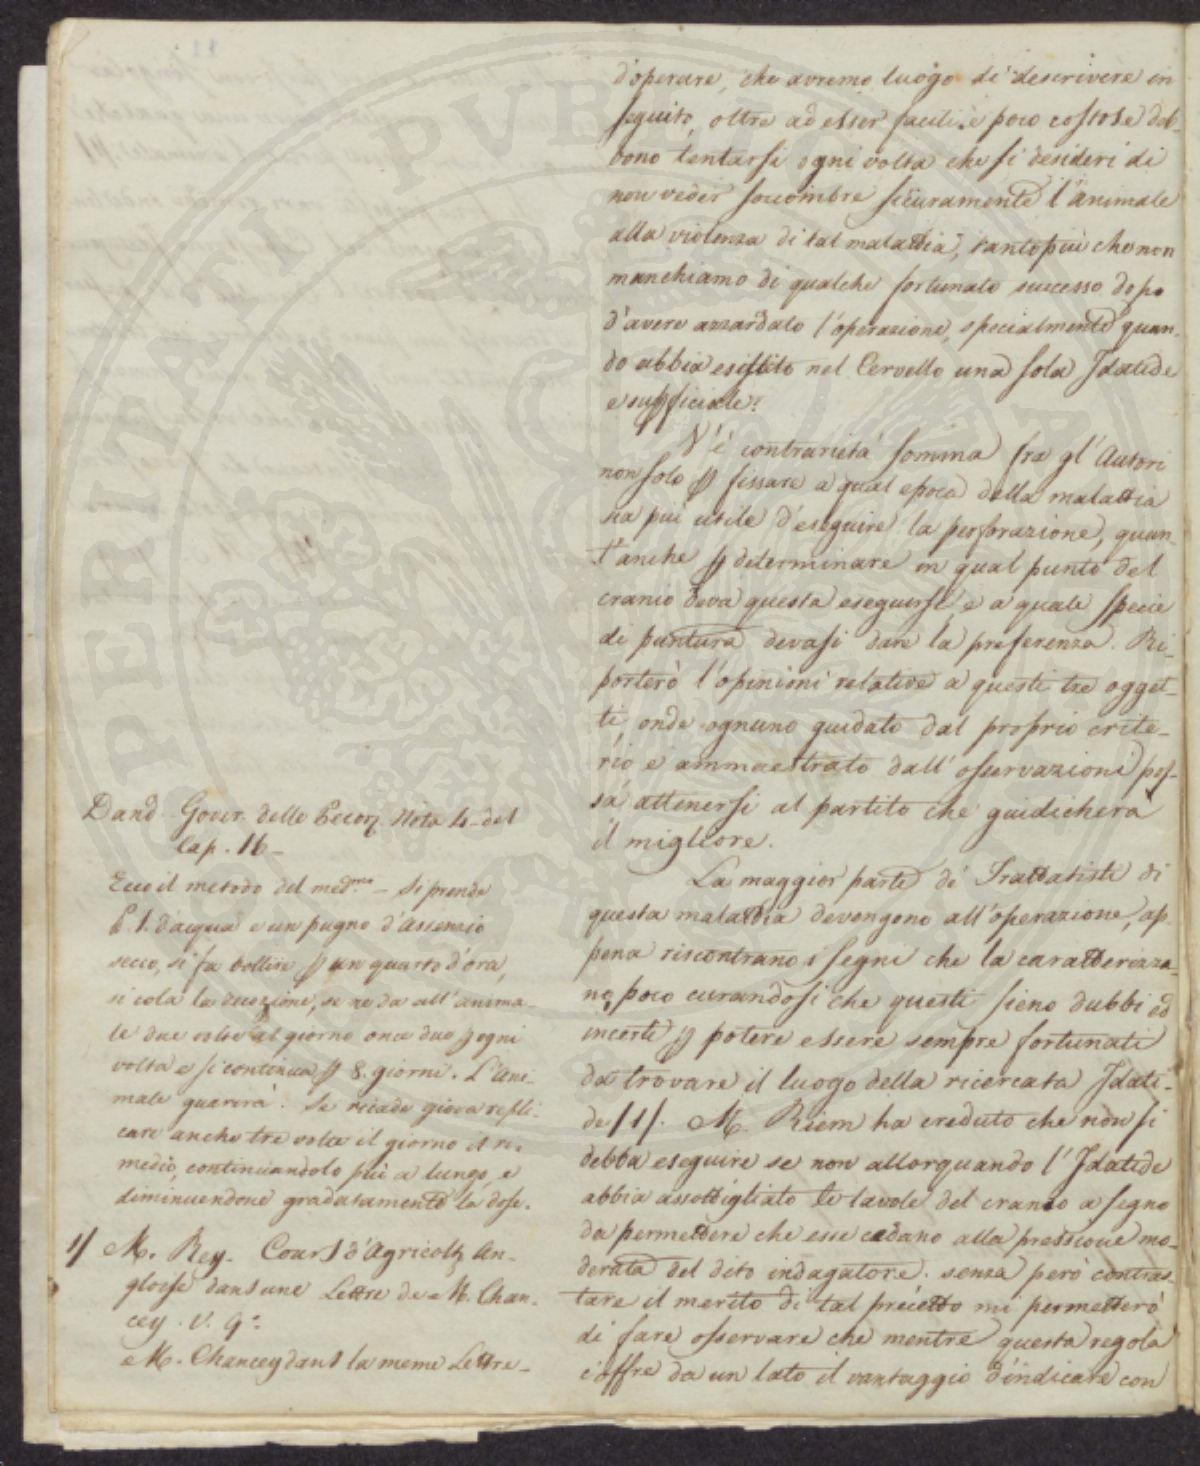 d'operare, che avremo luogo di descrivere in
seguito, oltre ad esser facili, e poco costose deb-
bono tentarsi ogni volta che si desideri di
non veder soccombre sicuramente l'animale
alla violenza di tal malattia, tanto più che non
manchiamo di qualche fortunato successo dopo
d'avere azzardato l'operazione, specialmente quan-
do abbia esistito nel Cervello una sola Idatide
e supficiale.
V'è contrarietà somma fra gl'Autori
non solo p fissare a qual epoca della malattia
sia più utile d'eseguire la perforazione, quan-
t'anche p determinare in qual punto del
cranio deva questa eseguirsi, e a quale specie
di puntura devasi dare la preferenza. Ri-
porterò l'opinioni relative a questi tre ogget-
ti, onde ognuno guidato dal proprio crite-
rio e ammaestrato dall'osservazioni pos-
sa attenersi al partito che guidicherà
il migliore.
La maggior parte de' Trattatisti di
questa malattia devengono all'operazione, ap-
pena riscontrano i segni che la caratterizza-
no, poco curandosi che questi sieno dubbi ed
incerti p potere essere sempre fortunati
da trovare il luogo della ricercata Idati-
de /1/. M. Riem ha creduto che non si
debba eseguire se non allorquando l'Idatide
abbia assottigliato le tavole del cranio a segno
da permettere che esse cedano alla pressione mo-
derata del dito indagatore. senza però contras-
tare il merito di tal precetto mi permetterò
di fare osservare che mentre questa regola
c'offre da un lato il vantaggio d'indicare con
Dand. Gover. delle Pecor. Nota 4. del
Cap. 16-
Ecco il metodo del med.mo - Si prende
l. 1. d'acqua e un pugno d'Assenzio
secco, si fa bollire p un quarto d'ora,
si cola la decozione, se ne da all'anima-
le due volte al giorno once due p ogni
volta e si continua p 8. giorni. L'Ani-
male guarirà. Se ricade giova repli-
care anche tre volte il giorno il ri-
medio, continuandolo più a lungo, e
diminuendone gradatamente la dose.
1/ M. Rey. Cours d'Agricolt. An-
gloise dans une Lettre de M. Chan-
cey. V. 9.
e M. Chancey dans la meme Lettre-